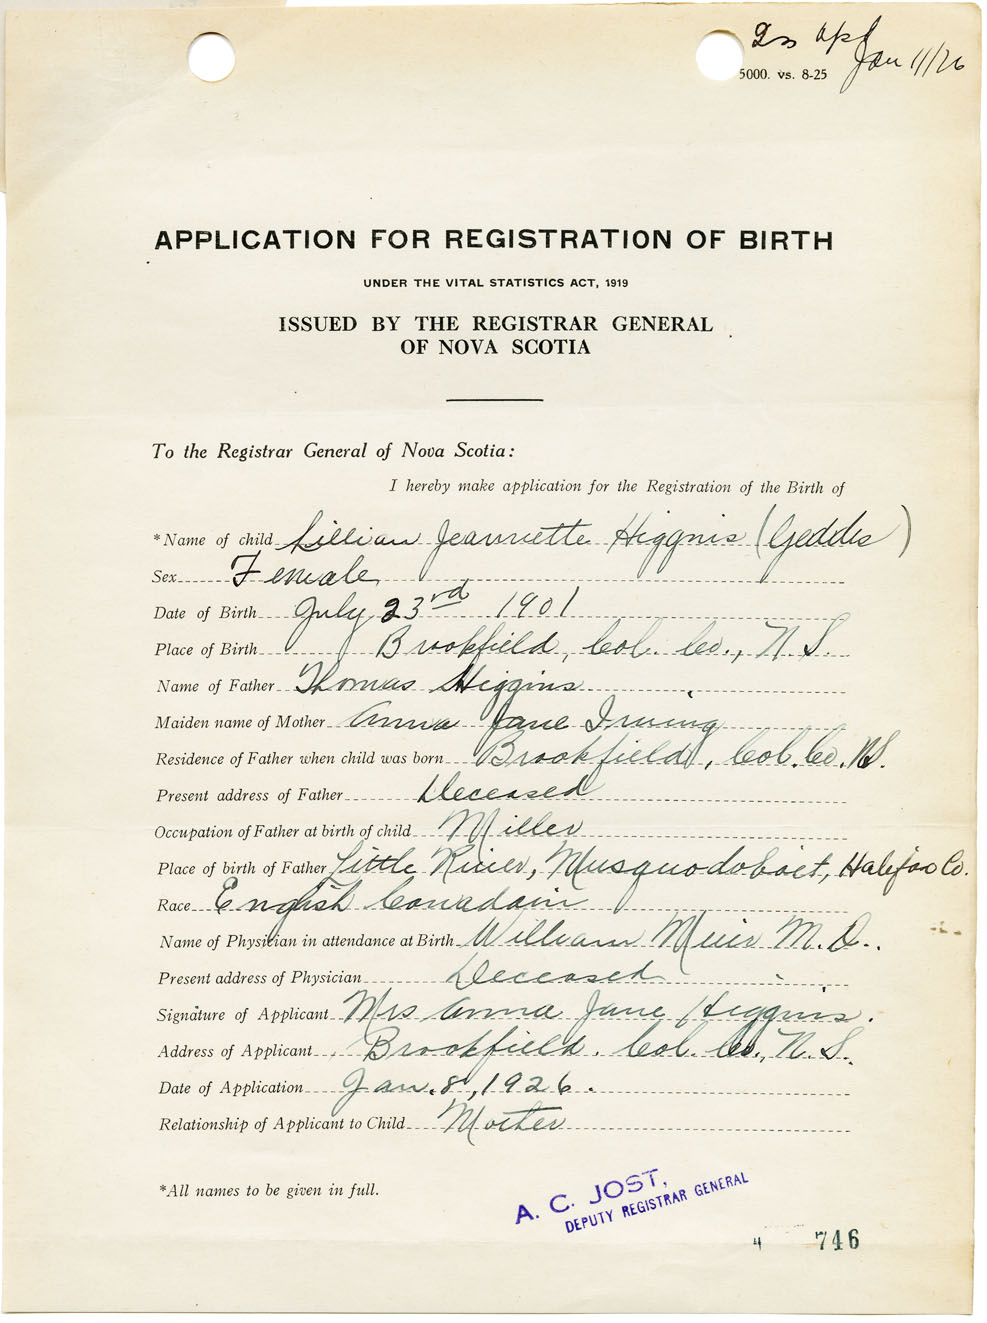 Jan 11/26
5000. vs. 8-25
APPLICATION FOR REGISTRATION OF BIRTH
UNDER THE VITAL STATISTICS ACT, 1919
ISSUED BY THE REGISTRAR GENERAL
OF NOVA SCOTIA
To the Registrar General of Nova Scotia:
I hereby make application for the Registration of the Birth of
*Name of child Lillian Jeannette Higgins (Geddes)
Sex Female
Date of Birth July 23rd 1901
Place of Birth Brookfield, Col. Co., N.S.
Name of Father Thomas Higgins
Maiden name of Mother Anna Jane Irving
Residence of Father when child was born Brookfield, Col. Co. N.S.
Present address of Father Deceased
Occupation of Father at birth of child Miller
Place of birth of Father Little River, Musquodoboit, Halifax Co.
Race English Canadain
Name of Physician in attendance at Birth William Muir M.D..
Present address of Physician Deceased
Signature of Applicant Mrs Anna Jane Higgins.
Address of Applicant Brookfield. Col. Co., N.S.
Date of Application Jan. 8, 1926.
Relationship of Applicant to Child Mother
*All names to be given in full.
A. C. JOST,
DEPUTY REGISTRAR GENERAL
4 746